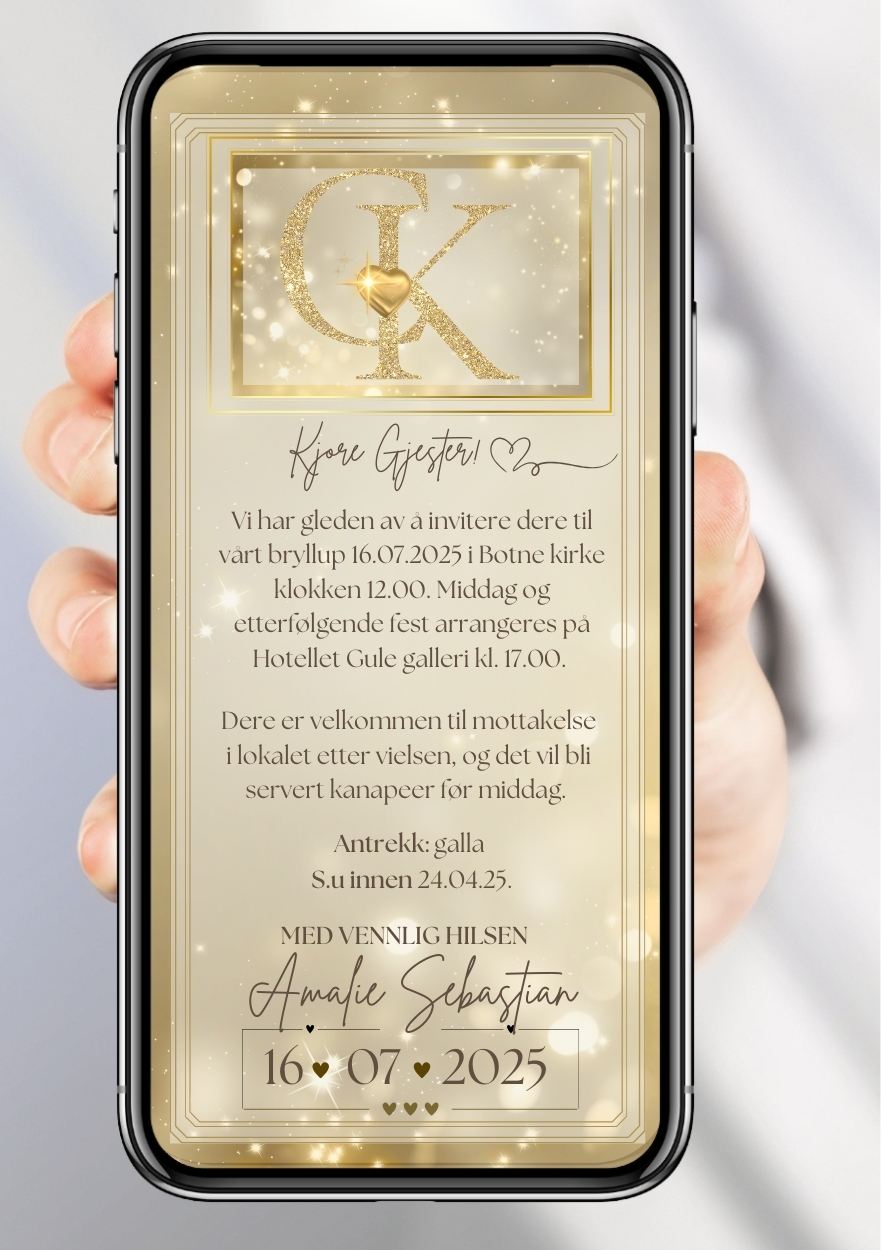 CK
Kjore Gjester!
Vi har gleden av å invitere dere til
vårt bryllup 16.07.2025 i Botne kirke
klokken 12.00. Middag og
etterfølgende fest arrangeres på
Hotellet Gule galleri kl. 17.00.
Dere er velkommen til mottakelse
i lokalet etter vielsen, og det vil bli
servert kanapeer før middag.
Antrekk: galla
S.u innen 24.04.25.
MED VENNLIG HILSEN
Amalie Sebastian
16 ♥ 07 ♥ 2025